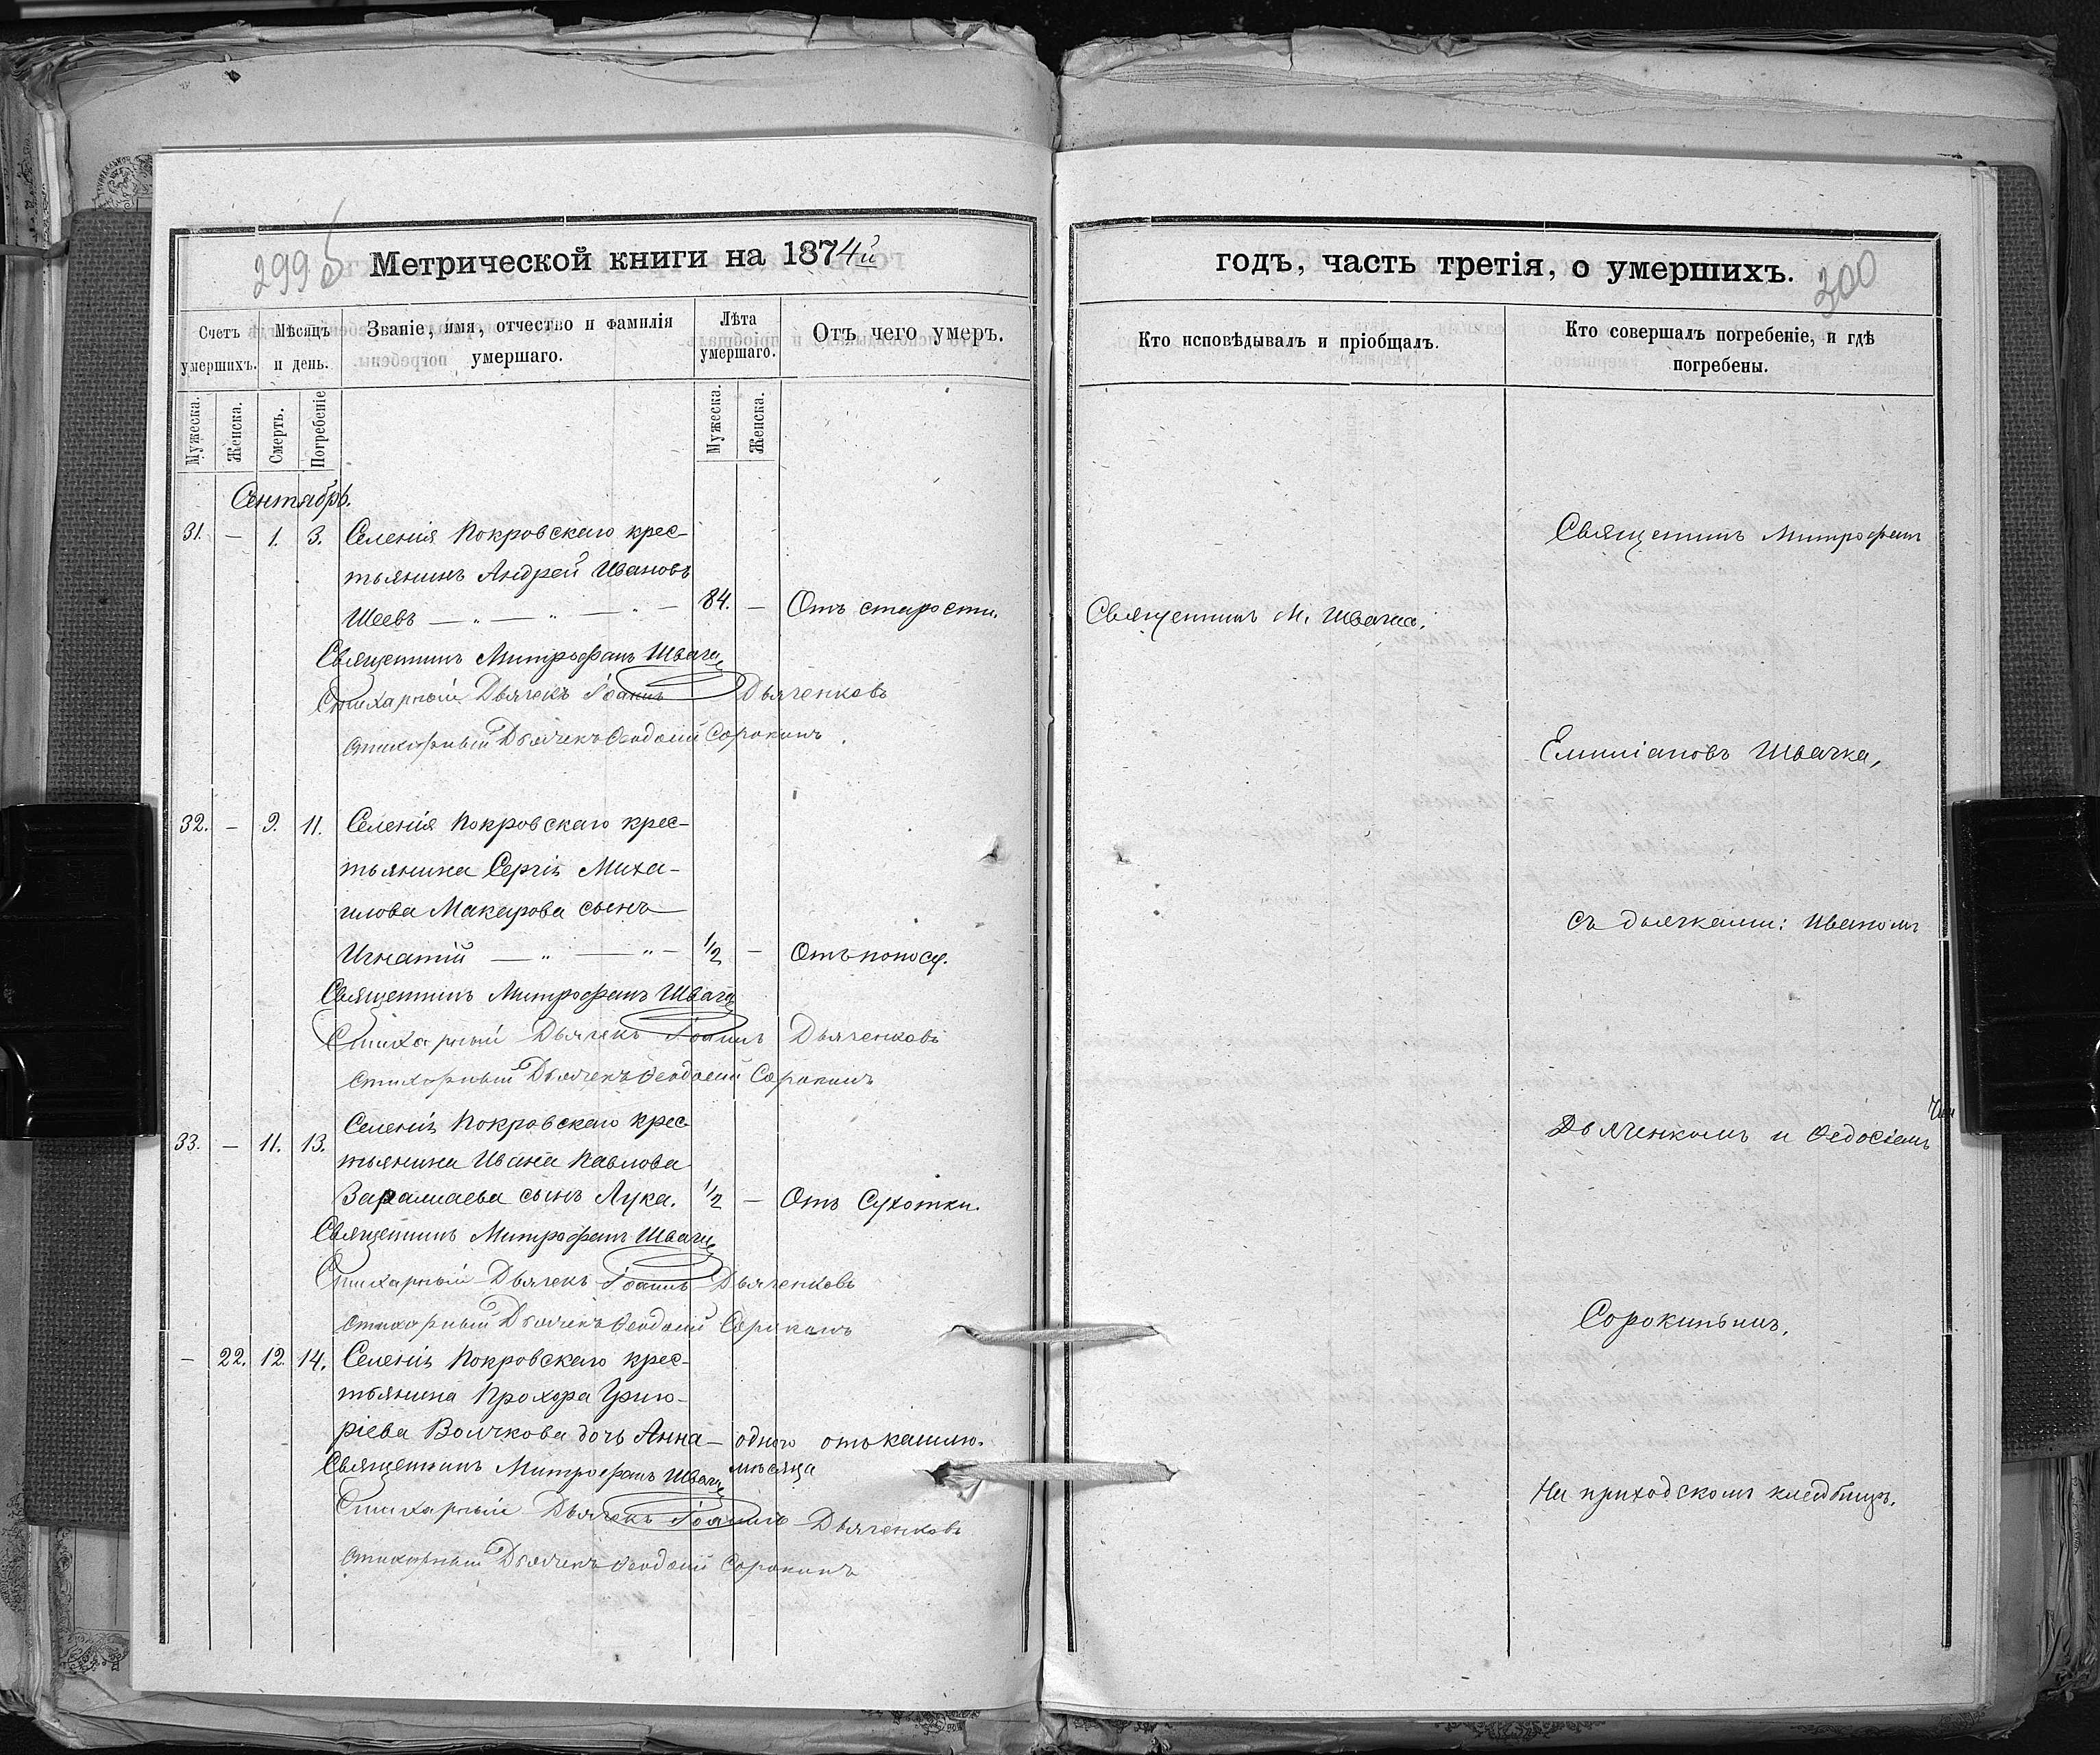 299б
Метрической книги на 1874й
Счетъ умершихъ.
Мѣсяцъ и день.
Званіе, имя, отчество и фамилія умершаго.
Лѣта умершаго.
Отъ чего умеръ.
Мужеска. Женска. Смерть. Погребеніе Мужеска. Женска.
Сентябрь.
31. — 1. 3. Селенія Покровскаго крес-
тьянинъ Андрей Ивановъ
Шеевъ — „ — „ — 84. — Отъ старости.
Священникъ Митрофанъ Швачка
Стихарный Дьячекъ Іоаннъ Дьяченковъ
Стихарный Дьячекъ Ѳеодосій Сорокинъ
32. — 9. 11. Селенія Покровскаго крес-
тьянина Сергія Миха-
илова Макарова сынъ
Игнатій — „ — „ — 1/2 — Отъ поносу.
Священникъ Митрофанъ Швачка
Стихарный Дьячекъ Іоаннъ Дьяченковъ
Стихарный Дьячекъ Ѳеодосій Сорокинъ
Селенія Покровскаго крес-
33. — 11. 13. тьянина Ивана Павлова
сынъ Лука. 1/2 — Отъ Сухотки.
Священникъ Митрофанъ Швачка
Стихарный Дьячекъ Іоаннъ Дьяченковъ
Стихарный Дьячекъ Ѳеодосій Сорокинъ
— 22. 12. 14. Селенія Покровскаго крес-
тьянина Прохора Григо-
ріева Волчкова дочь Анна — одного отъ кашлю.
мѣсяца
Священникъ Митрофанъ Швачка
Стихарный Дьячекъ Іоаннъ Дьяченковъ
Стихарный Дьячекъ Ѳеодосій Сорокинъ
годъ, часть третія, о умершихъ.
300
Кто исповѣдывалъ и пріобщалъ.
Кто совершалъ погребеніе, и гдѣ
погребены.
Священникъ М. Швачка.
Священникъ Митрофанъ
Емиліановъ Швачка,
съ дьячками: Иваномъ
Дьяченкомъ и Ѳедосіемъ
Сорокинымъ,
На приходскомъ кладбищѣ.